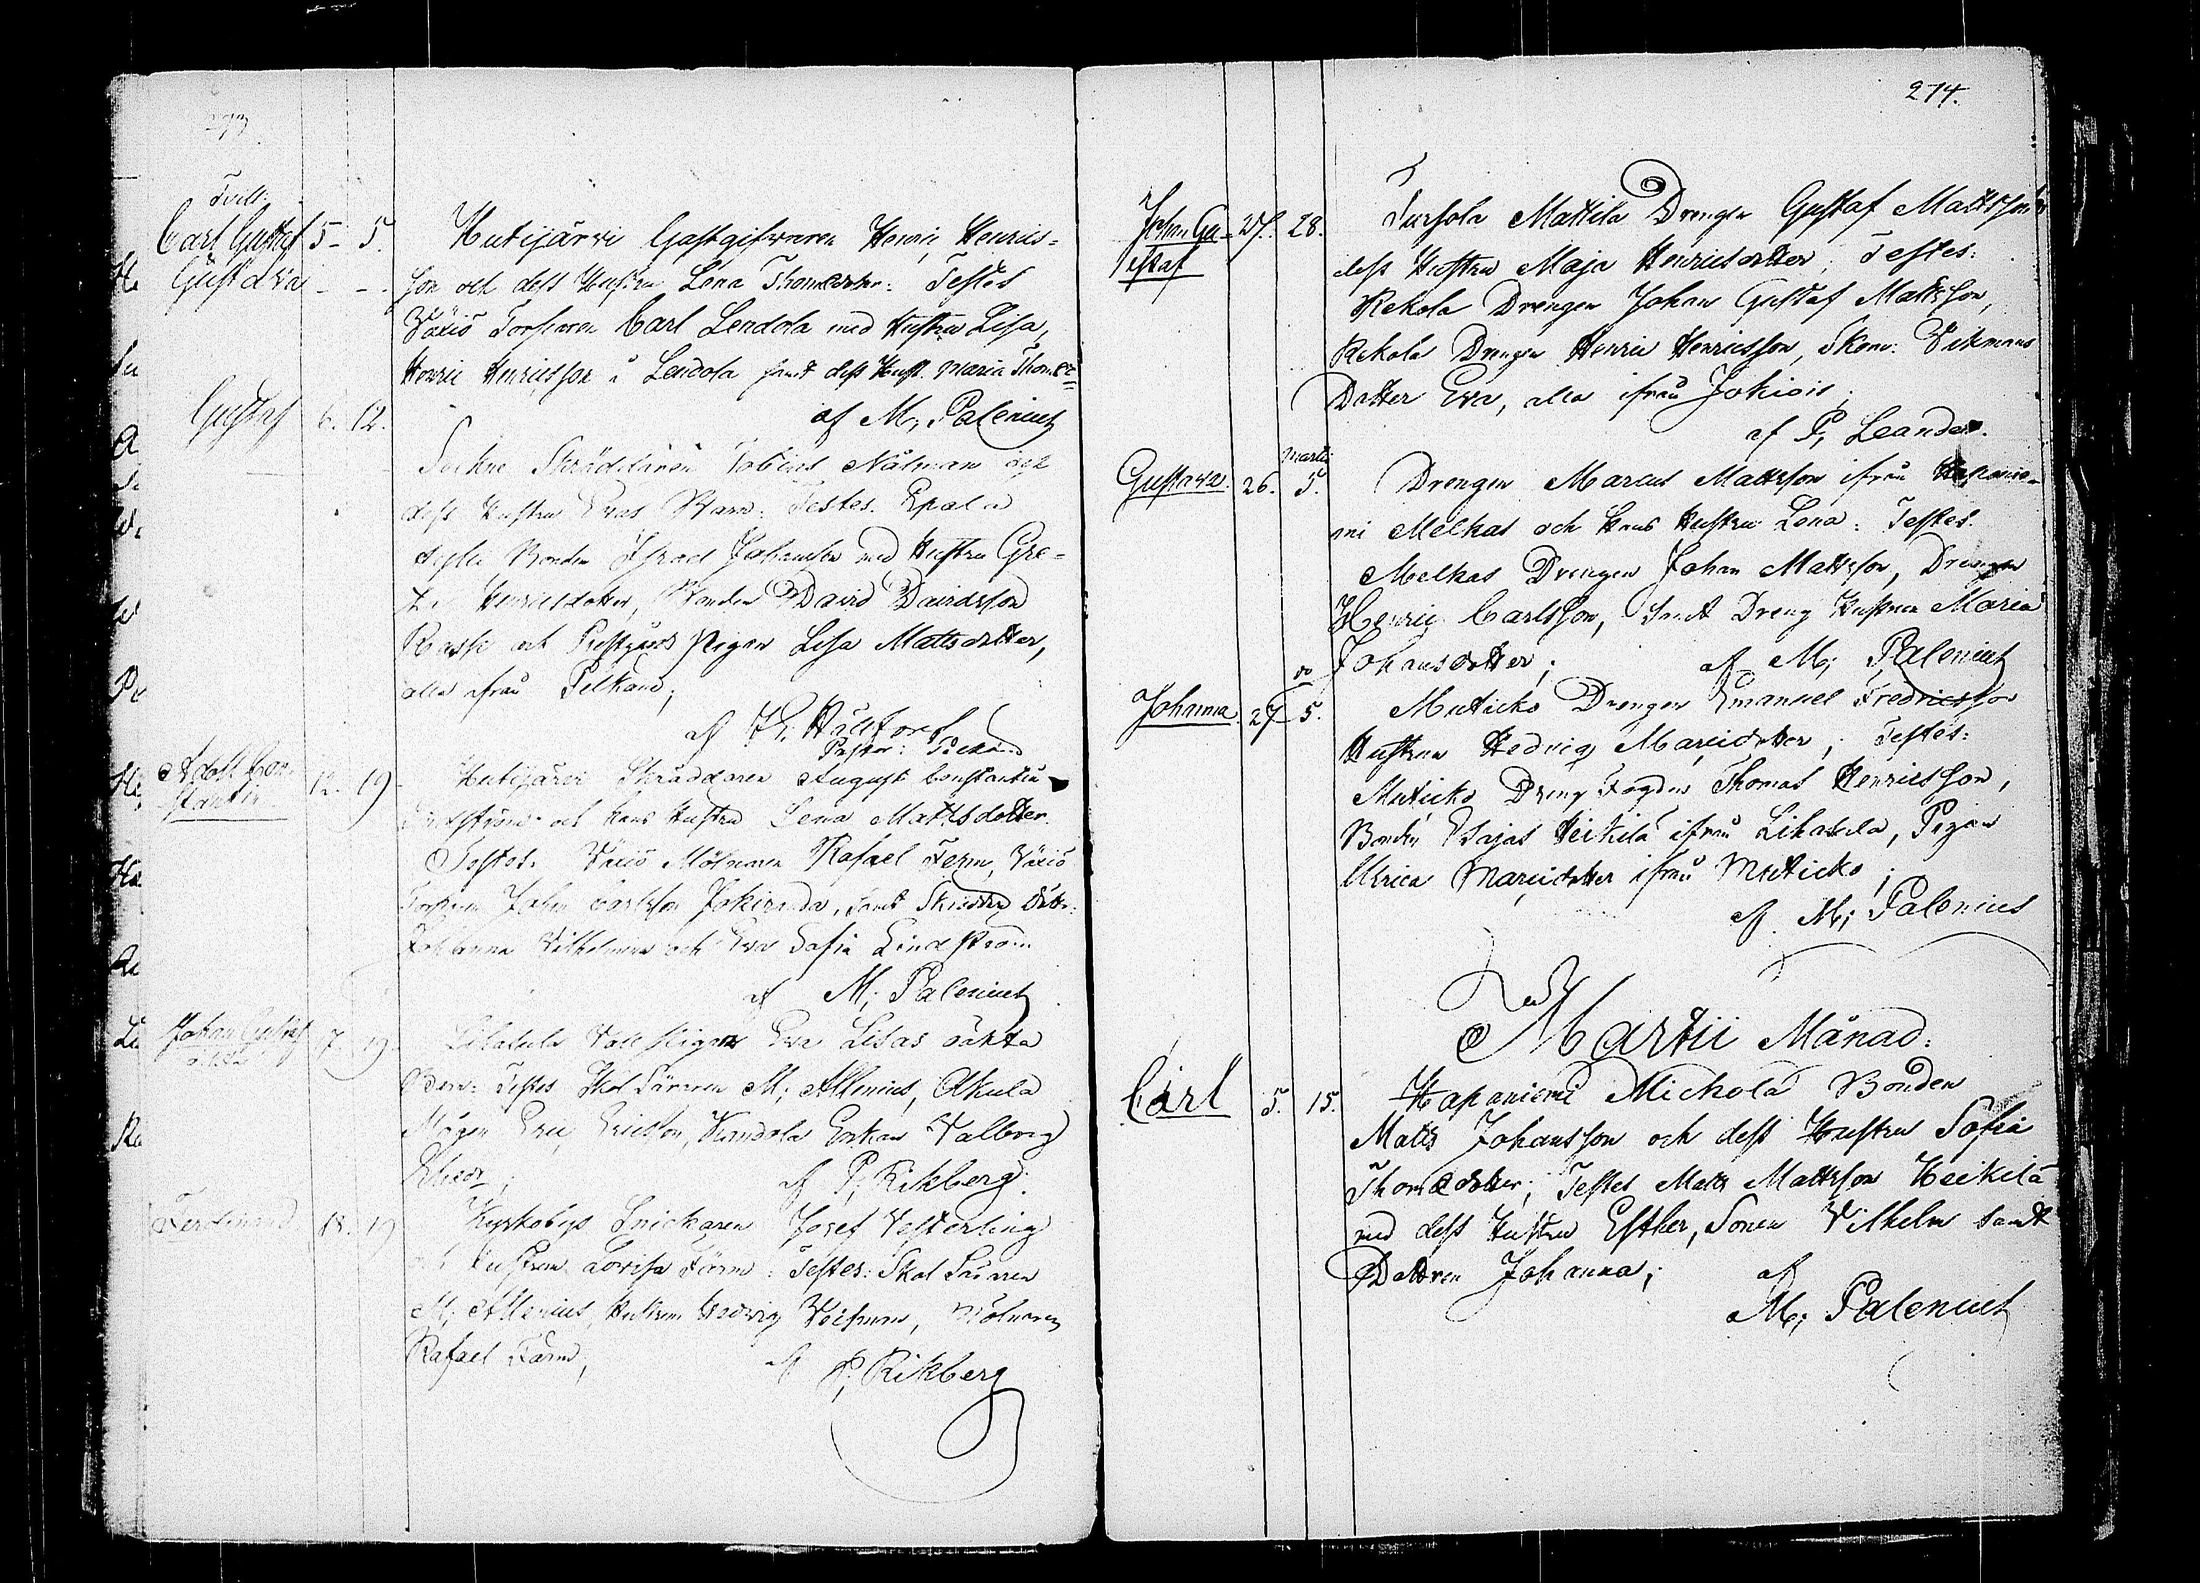 273
Tvill.
Carl Gustaf 5 - 5. Hutijärvi Gästgifvaren Henric Henrics-
Gustava - - son och dess Hustru Lena Thomædotter: Testes
Växiö Torparen Carl Lendola med Hustru Lisa,
Henric Henricsson i Lendola samt dess Hust. Maria Thomædr
af M; Palenius
Gustaf 6. 12. Sockne Skräddaren Tobias Nålman och
dess Hustru Evas Barn: Testes. Epala
Bonden Israel Johansson med Hustru Gre-
ta Henricsdotter, Bonden David Davidsson
och Prestgårds Pigan Lisa Mattsdotter,
alla ifrån Pelkäne;
af
Adolf Con-
stantin 12. 19. Hutijärvi Skräddaren August Constantin
Lindström och hans Hustru Lena Mattsdotter.
Testes. Växiö Mölnaren Rafael Ferm, Växiö
Torparen Johan Carlsson Jokiranda, samt Skräddar Döttr:
Johanna Vilhelmina och Eva Sofia Lindström
af M; Palenius
Johan Gustaf 7. 19. Lihasula Vall Pigan Eva Lisas oäkta
Barn: Testes Skol Läraren M; Allenius, Akula
Mågen Eric Ericsson, Enkan Valborg
af P; Rikberg.
Ferdinand 18. 19 Kyrkobys Snickaren Josef Vesterling
och Hustrun Lovisa Törn: Testes: Skol Läraren
M; Allenius, Hustrun Hedvig, Mölnaren
Rafael Färm, af P; Rikberg
274.
Johan Gu- 27. 28. Tursola Mattila Drengen Gustaf Mattsson
staf
dess Hustru Maja Henricsdotter; Testes:
Rekola Drengen Johan Gustaf Mattsson,
Rekola Drengen Henric Henricsson, Skom: Vikmans
Dotter Eva, alla ifrån Jokiois;
af P; Leander.
Martii
Gustava. 26. 5. Drengen Marcus Mattsson ifrån Haapanie-
mi Melkas och Hans Hustru Lena: Testes.
Melkas Drengen Johan Mattsson, Drengen
Henric Carlsson, samt Dreng Hustrun Maria
Johansdotter; af M; Palenius
do
Johanna. 27 5. Muticko Drengen Emanuel Fredricsson
Hustrun Hedvig Marcidotter; Testes:
Muticko Dreng Fogden Thomas Henricsson,
Bonden Esajas Heikilä ifrån Lihasula, Pigan
Ulrica Marcidotter ifrån Muticko;
af M; Palenius
Martii Månad:
Carl 5. 15. Hapaniemi Mickola Bonden
Matts Johansson och dess Hustru Sofia
Thomædotter; Testes Matts Mattsson Heikilä
med dess Hustru Esther, Sonen Vilhelm samt
Dottren Johanna; af
M; Palenius